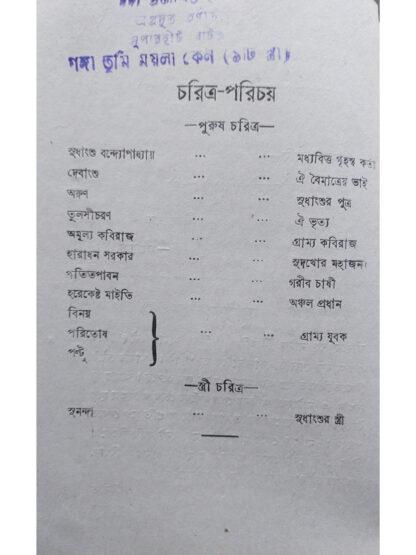 গঙ্গা তুমি ময়লা কেন (৯টি স্ত্রী)
চরিত্র-পরিচয়
—পুরুষ চরিত্র—
সুধাংশু বন্দ্যোপাধ্যায় ... ... মধ্যবিত্ত গৃহস্থ কর্তা
দেবাংশু ... ... ঐ বৈমাত্রেয় ভাই
অরুণ ... ... সুধাংশুর পুত্র
তুলসীচরণ ... ... ঐ ভৃত্য
অমূল্য কবিরাজ ... ... গ্রাম্য কবিরাজ
হারাধন সরকার ... ... সুদখোর মহাজন
পতিতপাবন ... ... গরীব চাষী
হরেকেষ্ট মাইতি ... ... অঞ্চল প্রধান
বিনয়
পরিতোষ ... ... গ্রাম্য যুবক
পল্টু
—স্ত্রী চরিত্র—
সুনন্দা ... ... সুধাংশুর স্ত্রী